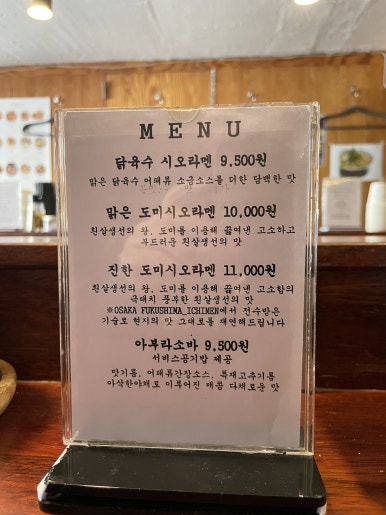 MENU
닭육수 시오라멘 9,500원
맑은 닭육수 어패류 소금소스를 더한 담백한 맛
맑은 도미시오라멘 10,000원
흰살생선의 왕, 도미를 이용해 끓여낸 고소하고
부드러운 흰살생선의 맛
진한 도미시오라멘 11,000원
흰살생선의 왕, 도미를 이용해 끓여낸 고소함의
극대치 풍부한 흰살생선의 맛
※OSAKA FUKUSHIMA_ICHIMEN에서 전수받은
기술로 현지의 맛 그대로를 재연해드립니다
아부라소바 9,500원
서비스공기밥 제공
맛기름, 어패류간장소스, 특재고추기름
아삭한야채로 이루어진 매콤 다채로운 맛